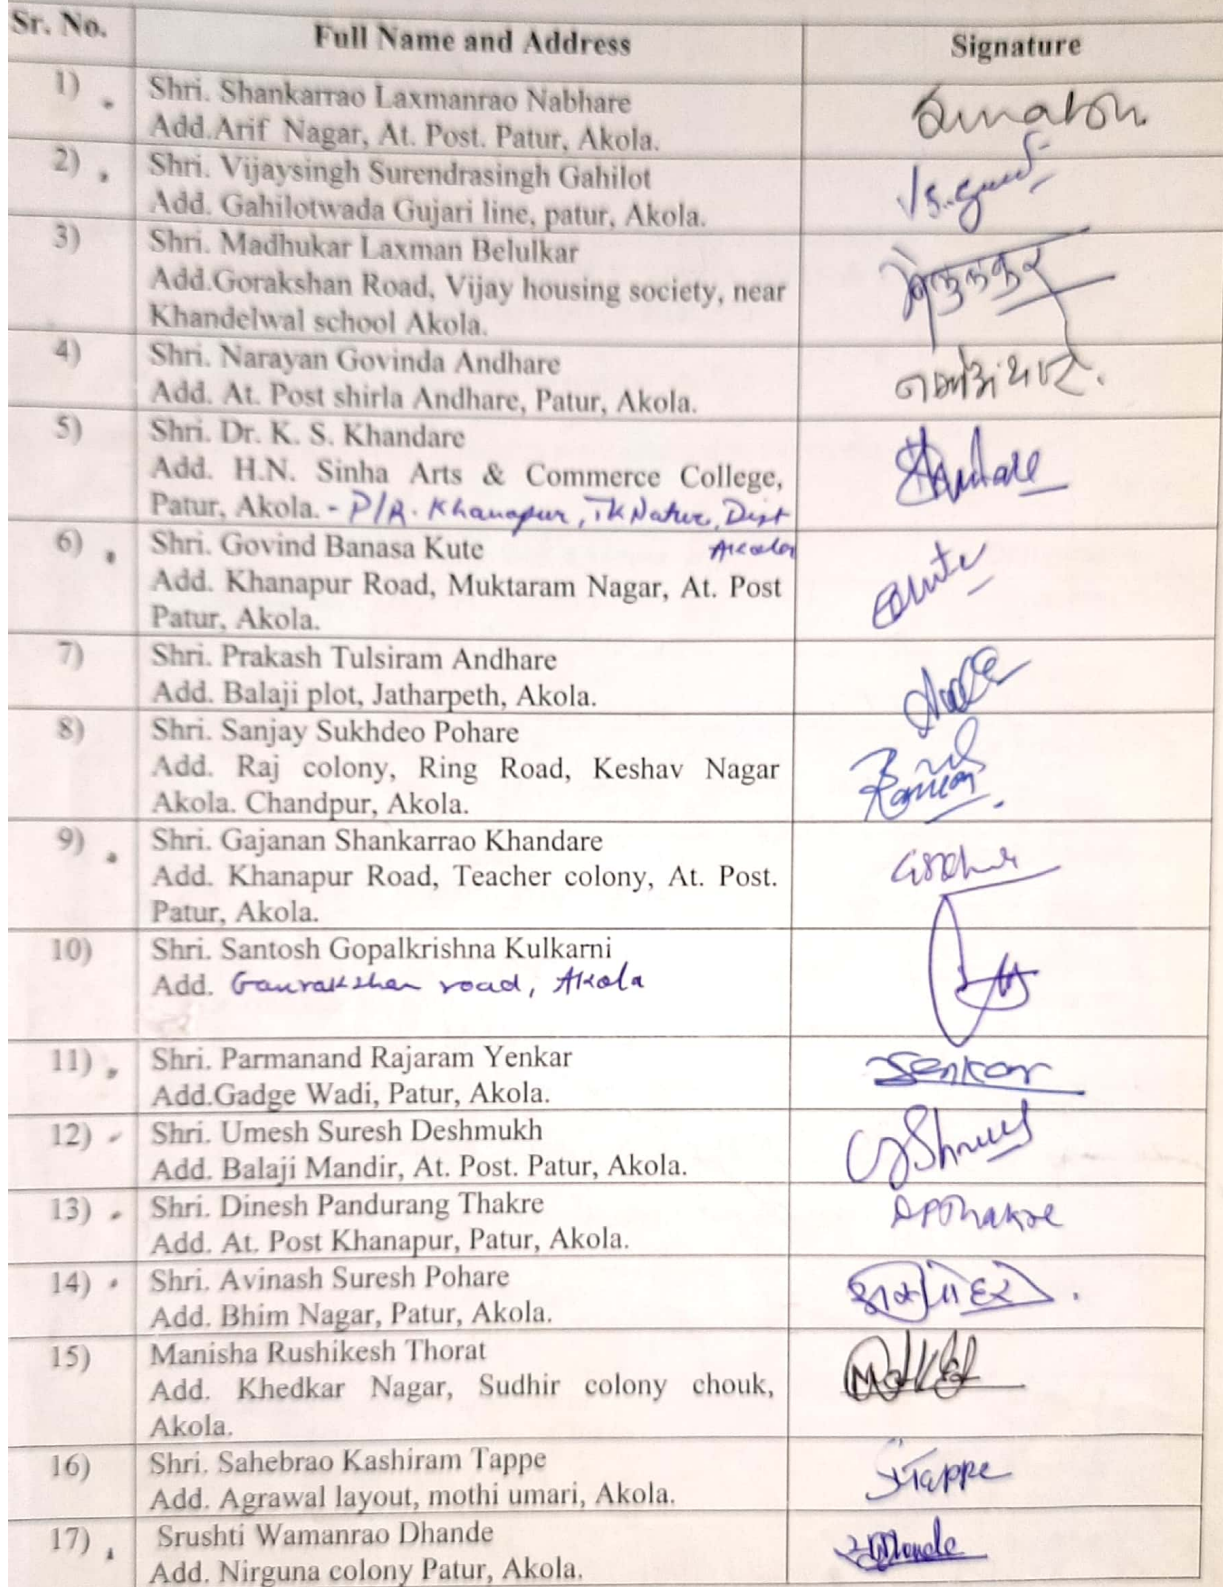 Sr. No. Full Name and Address Signature
1) Shri. Shankarrao Laxmanrao Nabhare
Add.Arif Nagar, At. Post. Patur, Akola.
2) Shri. Vijaysingh Surendrasingh Gahilot
Add. Gahilotwada Gujari line, patur, Akola.
3) Shri. Madhukar Laxman Belulkar
Add.Gorakshan Road, Vijay housing society, near
Khandelwal school Akola.
4) Shri. Narayan Govinda Andhare
Add. At. Post shirla Andhare, Patur, Akola.
5) Shri. Dr. K. S. Khandare
Add. H.N. Sinha Arts & Commerce College,
Patur, Akola. - P/R. Khanapur, Tk Dist
Akola
6) Shri. Govind Banasa Kute
Add. Khanapur Road, Muktaram Nagar, At. Post
Patur, Akola.
7) Shri. Prakash Tulsiram Andhare
Add. Balaji plot, Jatharpeth, Akola.
8) Shri. Sanjay Sukhdeo Pohare
Add. Raj colony, Ring Road, Keshav Nagar
Akola. Chandpur, Akola.
9) Shri. Gajanan Shankarrao Khandare
Add. Khanapur Road, Teacher colony, At. Post.
Patur, Akola.
10) Shri. Santosh Gopalkrishna Kulkarni
Add. Gaurakshan road, Akola
11) Shri. Parmanand Rajaram Yenkar
Add.Gadge Wadi, Patur, Akola.
12) Shri. Umesh Suresh Deshmukh
Add. Balaji Mandir, At. Post. Patur, Akola.
13) Shri. Dinesh Pandurang Thakre DPThakre
Add. At. Post Khanapur, Patur, Akola.
14) Shri. Avinash Suresh Pohare
Add. Bhim Nagar, Patur, Akola.
15) Manisha Rushikesh Thorat
Add. Khedkar Nagar, Sudhir colony chouk,
Akola.
16) Shri. Sahebrao Kashiram Tappe
Add. Agrawal layout, mothi umari, Akola.
17) Srushti Wamanrao Dhande
Add. Nirguna colony Patur, Akola.